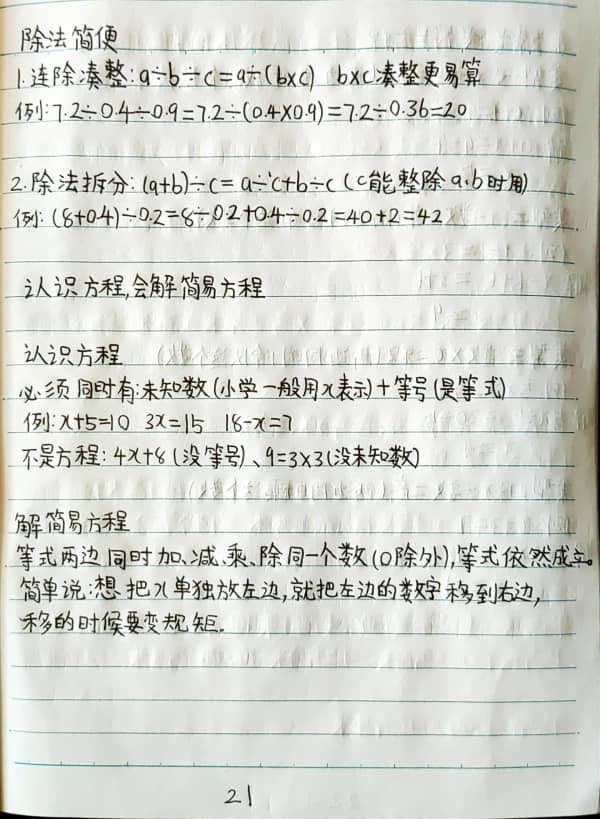 除法简便
1.连除凑整:a÷b÷c=a÷(b×c) b×c凑整更易算
例:7.2÷0.4÷0.9=7.2÷(0.4×0.9)=7.2÷0.36=20
2.除法拆分:(a+b)÷c=a÷c+b÷c(c能整除a.b时用)
例:(8+0.4)÷0.2=8÷0.2+0.4÷0.2=40+2=42
认识方程,会解简易方程
认识方程
必须同时有:未知数(小学一般用x表示)+等号(是等式)
例:x+5=10 3x=15 18-x=7
不是方程:4x+8(没等号)、9=3×3(没未知数)
解简易方程
等式两边同时加、减、乘、除同一个数(0除外),等式依然成立。
简单说:想把x单独放左边,就把左边的数字移到右边,
移的时候要变规矩.
21